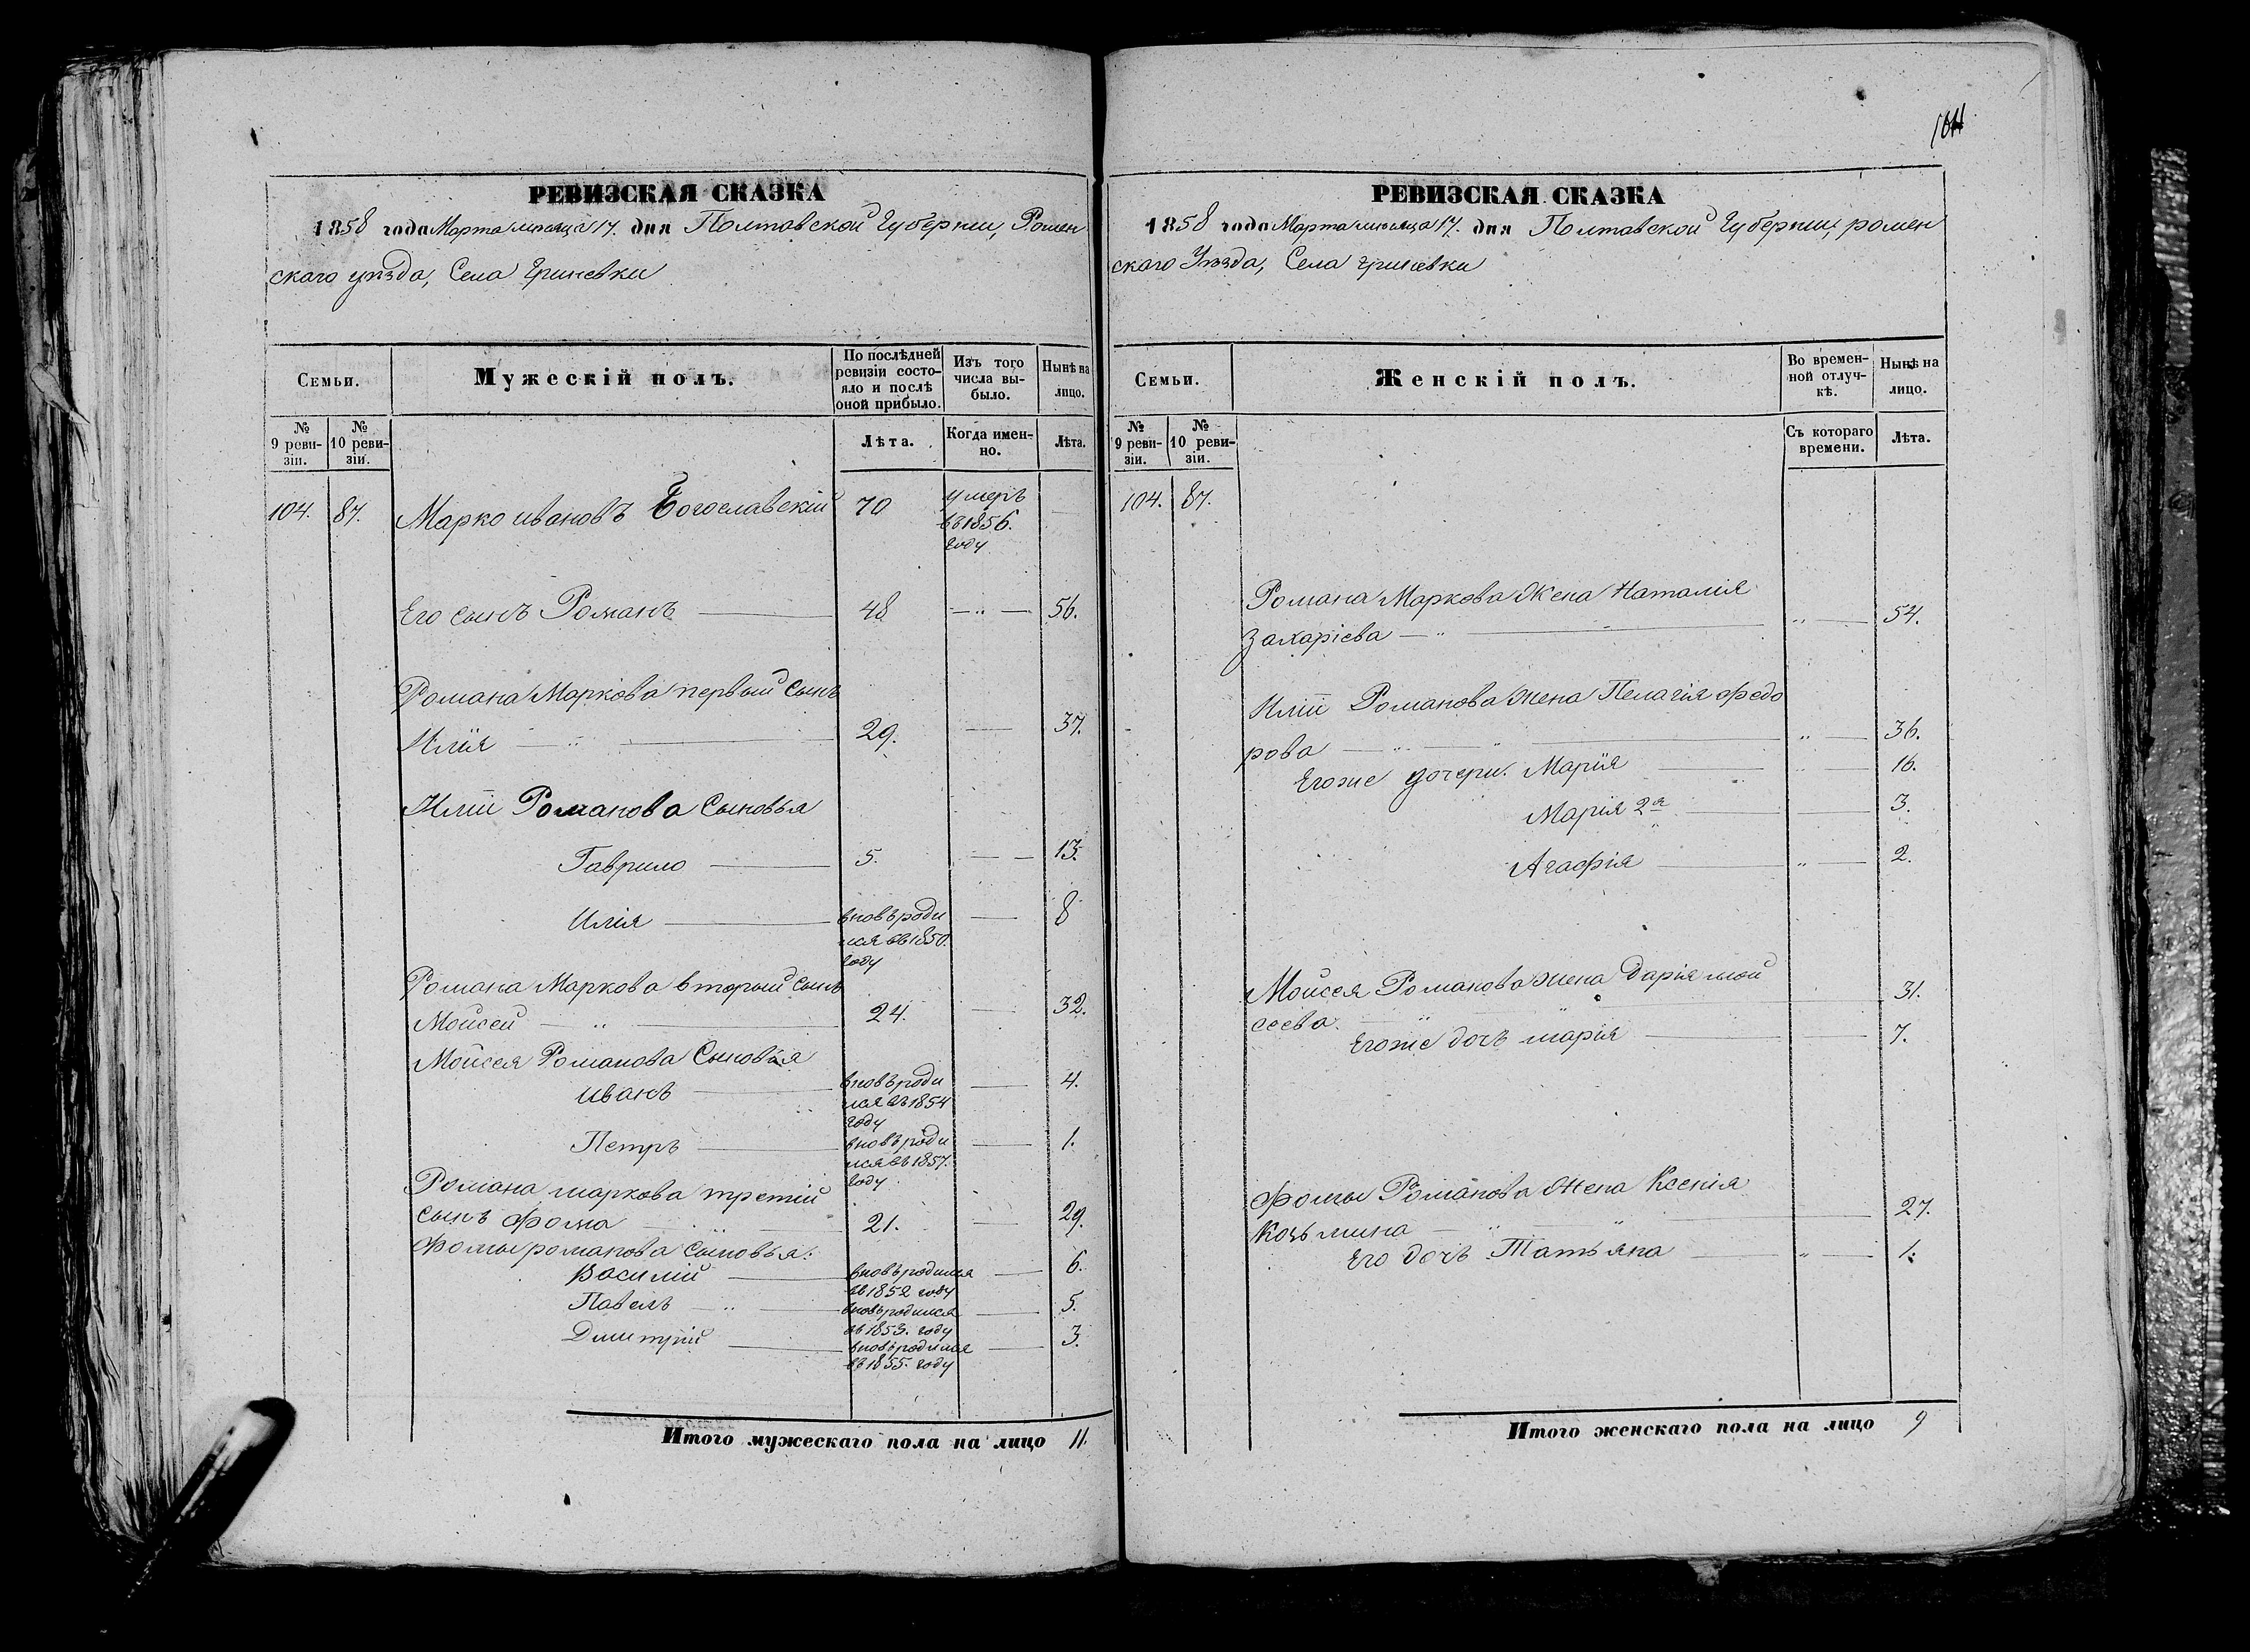 РЕВИЗСКАЯ СКАЗКА
1858 года Марта месяца 17. дня Полтавской Губернии, Ромен
скаго уѣзда, Села Гриневки
Семьи.
Мужескій полъ.
По послѣдней ревизіи состояло и послѣ оной прибыло.
Изъ того числа выбыло.
Нынѣ на лицо.
№ 9 ревизіи.
№ 10 ревизіи.
Лѣта.
Когда именно.
Лѣта.
104. 87. Марко ивановъ Богославскій 70 умеръ
въ 1856.
году
Его сынъ Романъ 48 56.
Романа Маркова первый сынъ
Илія 29. 37.
Иліи Романова Сыновья
Гаврило 5. 13.
Илія вновь роди 8
лся въ 1850.
году
Романа Маркова вторый сынъ
Мойсей 24. 32.
Мойсея Романова Сыновья
иванъ вновь роди 4.
лся въ 1854
году
Петръ вновь роди 1.
лся въ 1857.
году
Романа маркова третій
сынъ Фома 21. 29.
Фомы романова сыновья:
Василій вновь родился 6.
въ 1852 году
Павелъ вновь родился 5.
въ 1853. году
Дмитрій вновь родился 3.
въ 1855. году
Итого мужескаго пола на лицо 11.
РЕВИЗСКАЯ СКАЗКА
1858 года Марта месяца 17. дня Полтавской Губернии, ромен
скаго Уѣзда, Села гриневки
Семьи.
Женскій полъ.
Во временной отлучкѣ.
Нынѣ на лицо.
№ 9 ревизіи.
№ 10 ревизіи.
Съ котораго времени.
Лѣта.
104. 87.
Романа Маркова Жена Наталія
Захаріева 54.
Иліи Романова жена Пелагія Федо
рова 36.
Егоже дочери. Марія 16.
Марія 2я 3.
Агафія 2.
Мойсея Романова жена Дарія мой
сеева. 31.
Егоже дочь марія 7.
Фомы Романова Жена Ксенія
Козьмина 27.
Его дочь Татьяна 1.
Итого женскаго пола на лицо 9